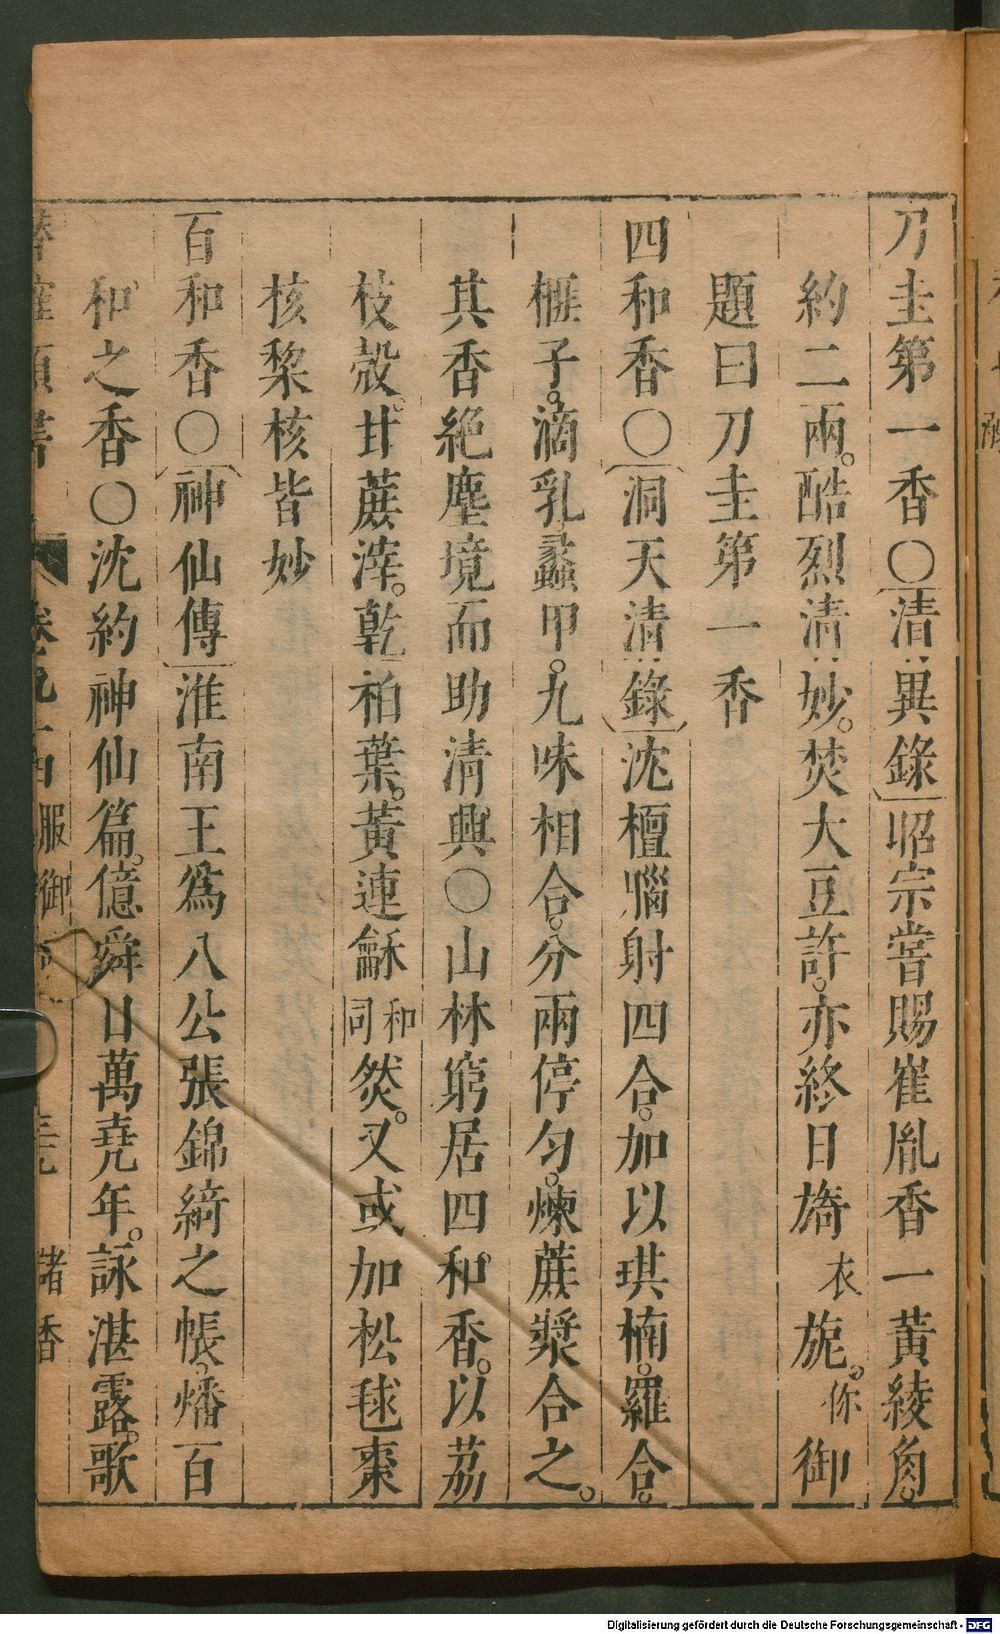 刀圭第一香〇清異錄昭宗嘗賜崔胤香一黃綾角。
約二兩。酷烈清妙。焚大豆許。亦終日旖衣旎。你御
題曰刀圭第一香
四和香〇洞天清錄沈檀腦射四合。加以琪楠。羅合。
榧子。滴乳蠡甲。九味相合。分兩停勻。煉蔗漿合之。
其香絕塵境而助清興〇山林窮居四和香。以荔
枝殼。甘蔗滓。乾柏葉。黃連龢和同然。又或加松毬棗
核棃核皆妙
百和香〇神仙傳淮南王爲八公張錦綺之帳。燔百
和之香〇沈約神仙篇。億舜日萬堯年。詠湛露。歌
類書 卷九十四 服御 諸香
Digitalisierung gefördert durch die Deutsche Forschungsgemeinschaft - DFG